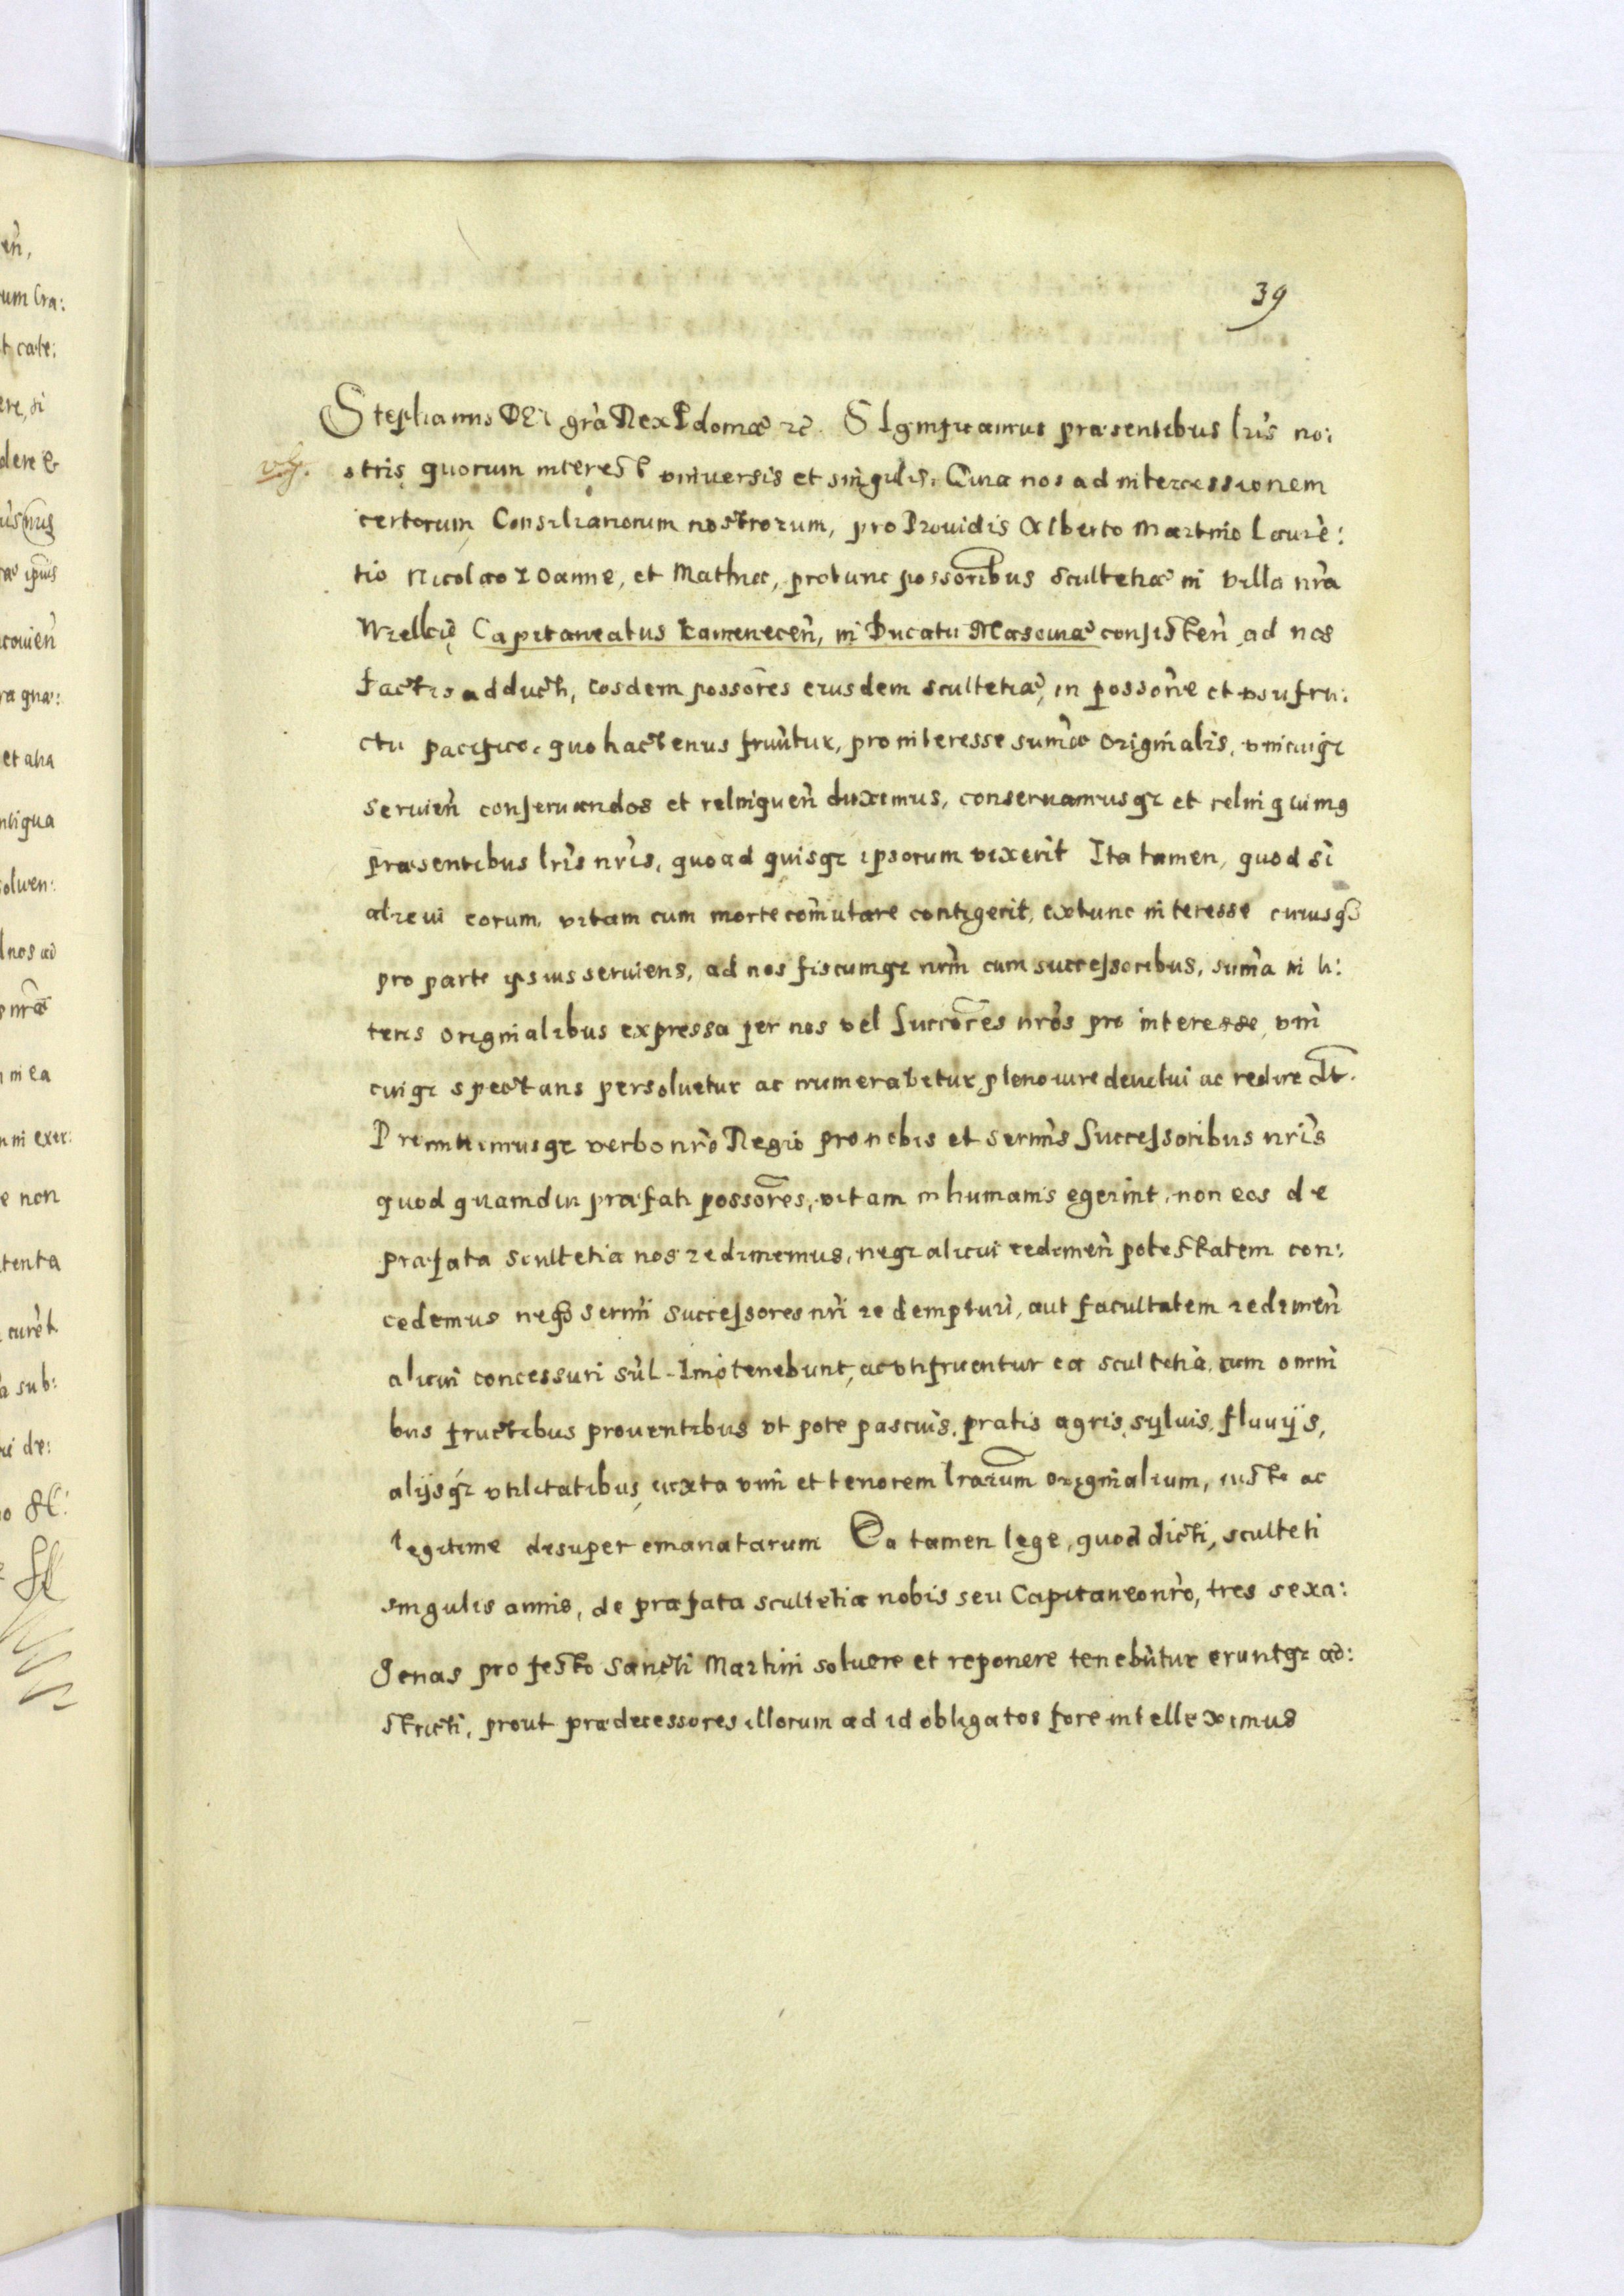 39
Stephanus DEI grã Rex Polonæ ꝛc̃. SIgnificamus præsentibus lrĩs no:
stris quorum interest vniuersis et singulis. Quia nos ad intercessionem
certorum Consiliariorum nostrorum, pro Prouidis Alberto Martino Laurẽ:
tio Nicolao Ioanne, et Mathia, protunc possoribus scultetiæ in villa nrã
Wielkie Capitaneatus Camenecen̄, in Ducatu Masouiæ consisten̄ ad nos
factis adducti, eosdem possores eiusdem scultetiæ, in possone et vsufru:
ctu pacifico, quo hactenus fruũtur, pro interesse sum̃æ originalis, vnicuiqꝫ
seruien̄ conseruandos et relinquen̄ duximus, conseruamusqꝫ et relinquimꝰ
præsentibus lrĩs nrĩs, quoad quisqꝫ ipsorum vixerit Ita tamen, quod si
alicui eorum, vitam cum morte com̃utare contigerit, extunc interesse cuiusqꝫ
pro parte ipsius seruiens, ad nos fiscumqꝫ nrm̃ cum successoribus, sum̃a in li:
teris originalibus expressa per nos vel Succõres nrõs pro interesse vni
cuiqꝫ spectans persoluetur ac numerabitur, pleno iure deuolui ac redire dt̃.
Promittimusqꝫ verbo nrõ Regio pro nobis et sermĩs Successoribus nrĩs
quod quamdiu præfati possores, vitam in humanis egerint, non eos de
præfata scultetia nos redimemus, neqꝫ alicui redimen̄ potestatem con:
cedemus neqꝫ sermĩ successores nrĩ redempturi, aut facultatem redimen̄
alicui concessuri sũt. Imo tenebunt, ac vtifruentur ea scultetia, cum omni
bus fructibus prouentibus vt pote pascuis, pratis agris, syluis, fluuijs,
alijsqꝫ vtilitatibus, iuxta vim et tenorem lrarum originalium, iuste ac
legitime desuper emanatarum Ea tamen lege, quod dicti, sculteti
singulis annis, de præfata scultetia nobis seu Capitaneo nrõ, tres sexa:
genas pro festo Sancti Martini soluere et reponere tenebũtur eruntqꝫ ad:
stricti, prout prædecessores illorum ad id obligatos fore intelleximus